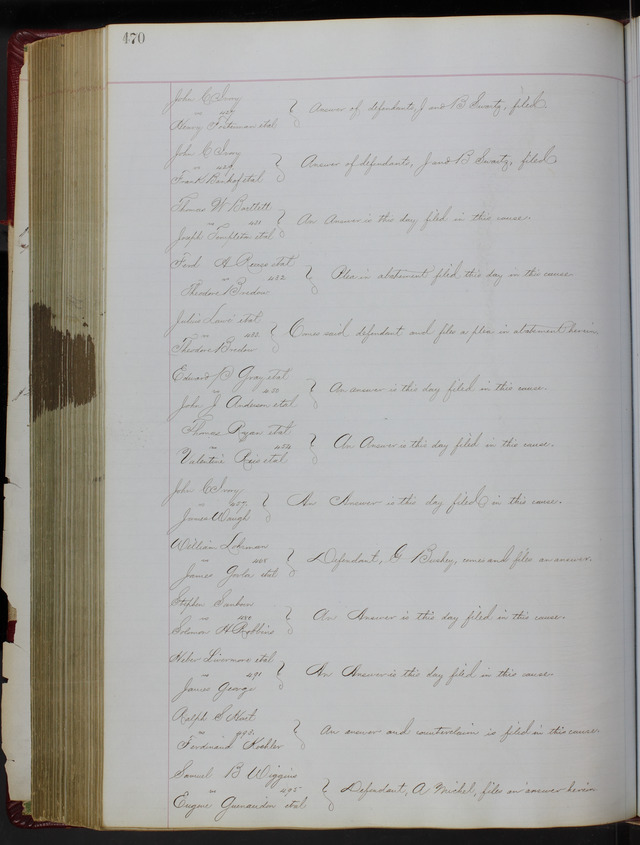 470
John C Ivory
vs
Henry et al
Answer of defendants, J and B Swartz, filed.
John C Ivory
vs
Frank et al
Answer of defendants, J and B Swartz, filed
Thomas W Bartlett
vs
Joseph Templeton et al
An Answer is this day filed in this cause.
Ford A et al
vs 482
Theodore Bredow
Plea in abatement filed this day in this cause
Julius et al
vs
Theodore Bredow
Comes said defendant and files a plea in abatement herein
Edward B Gray et al
vs
John J Anderson et al
An answer is this day filed in this cause.
Thomas Ryan et al
vs 484
Valentine Reis et al
An Answer is this day filed in this cause.
John C Ivory
vs
James Waugh
An Answer is this day filed in this cause.
William
vs
James et al
Defendant, G Bushey, comes and files an answer.
Stephen Sanborn
vs
Solomon H Robbins
An Answer is this day filed in this cause.
Heber Livermore et al
vs 491
James George
An Answer is this day filed in this cause
Ralph S Hart
vs
Ferdinand Koehler
An answer and counterclaim is filed in this cause.
Samuel B Wiggins
vs 495
Eugene Guenaudon et al
Defendant, A Michel, files an answer herein